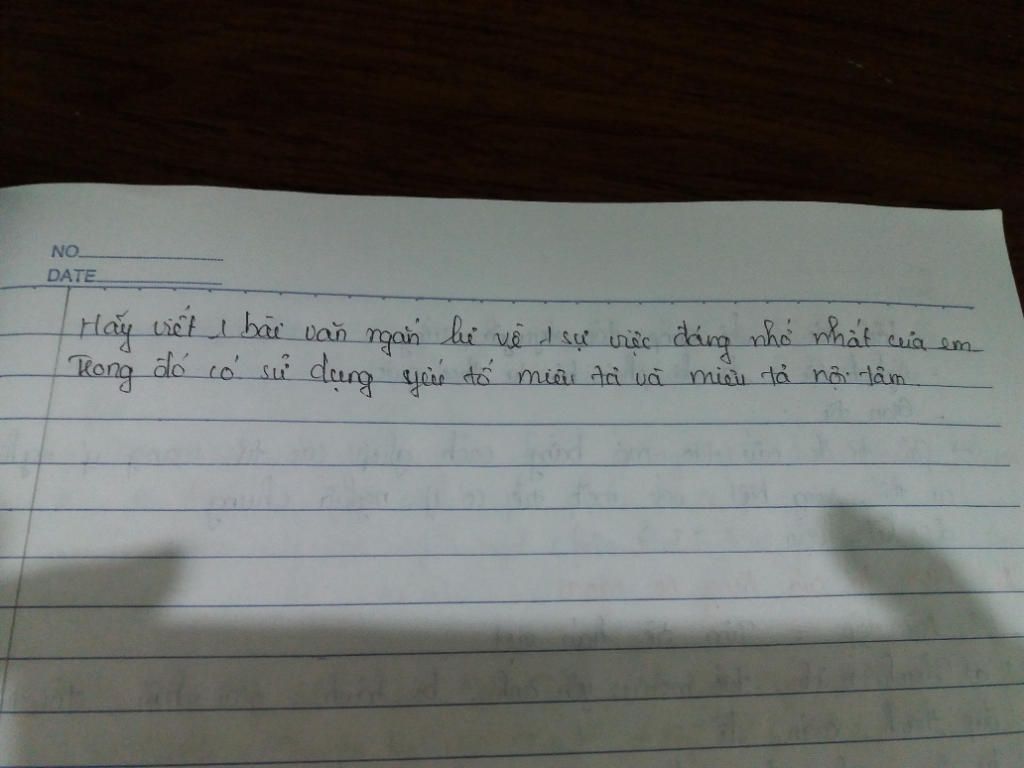 NO
DATE
Hãy viết 1 bài văn ngắn kể về 1 sự việc đáng nhớ nhất của em
Trong đó có sử dụng yếu tố miêu tả và miêu tả nội tâm